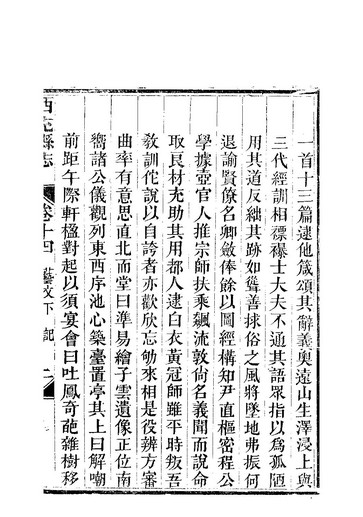 一首十三篇逮他箴頌其辭義奧遠山生澤浸上與
三代經訓相標襮士大夫不通其語眾指以為孤陋
用其道反絀其跡如嵬善捄俗之風將墜地弗振何
退諭賢僚名卿斂俸餘以圖經構知尹直樞密程公
學據壼官人推宗師扶乘飆流敦尙名義聞而說命
取良材充助其用都人逮白衣黃冠師雖平時叛吾
敎訓佗說以自誇者亦歡欣忘劬來相是役辨方審
曲率有意思直北而堂曰準易繪子雲遺像正位南
嚮諸公儀觀列東西序池心築臺置亭其上曰解嘲
前距午際軒楹對起以須宴會曰吐鳳奇葩雜樹移
西充縣志
卷十四
藝文下 記
二